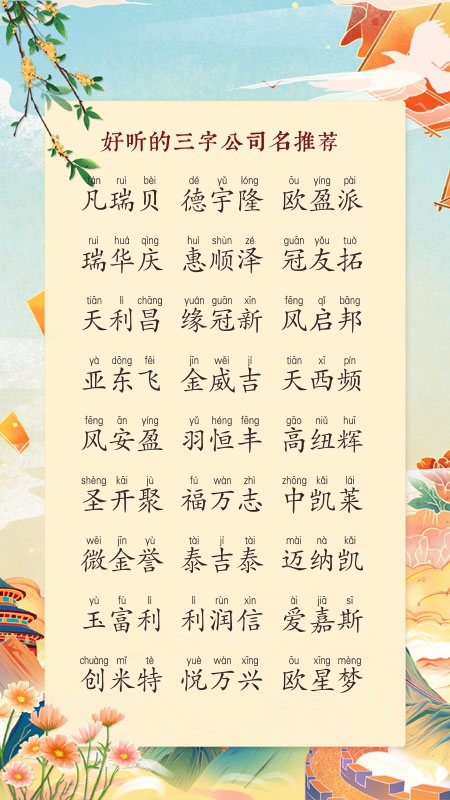 好听的三字公司名推荐
fán ruì bèi dé yǔ lóng ōu yíng pài
凡瑞贝 德宇隆 欧盈派
ruì huá qìng huì shùn zé guān yǒu tuò
瑞华庆 惠顺泽 冠友拓
tiān lì chāng yuán guān xīn fēng qǐ bāng
天利昌 缘冠新 风启邦
yà dōng fēi jīn wēi jí tiān xī pín
亚东飞 金威吉 天西频
fēng ān yíng yǔ héng fēng gāo niǔ huī
风安盈 羽恒丰 高纽辉
shèng kāi jù fú wàn zhì zhōng kǎi lái
圣开聚 福万志 中凯莱
wēi jīn yù tài jí tài mài nà kǎi
微金誉 泰吉泰 迈纳凯
yù fù lì lì rùn xìn ài jiā sī
玉富利 利润信 爱嘉斯
chuàng mǐ tè yuè wàn xīng ōu xīng mèng
创米特 悦万兴 欧星梦